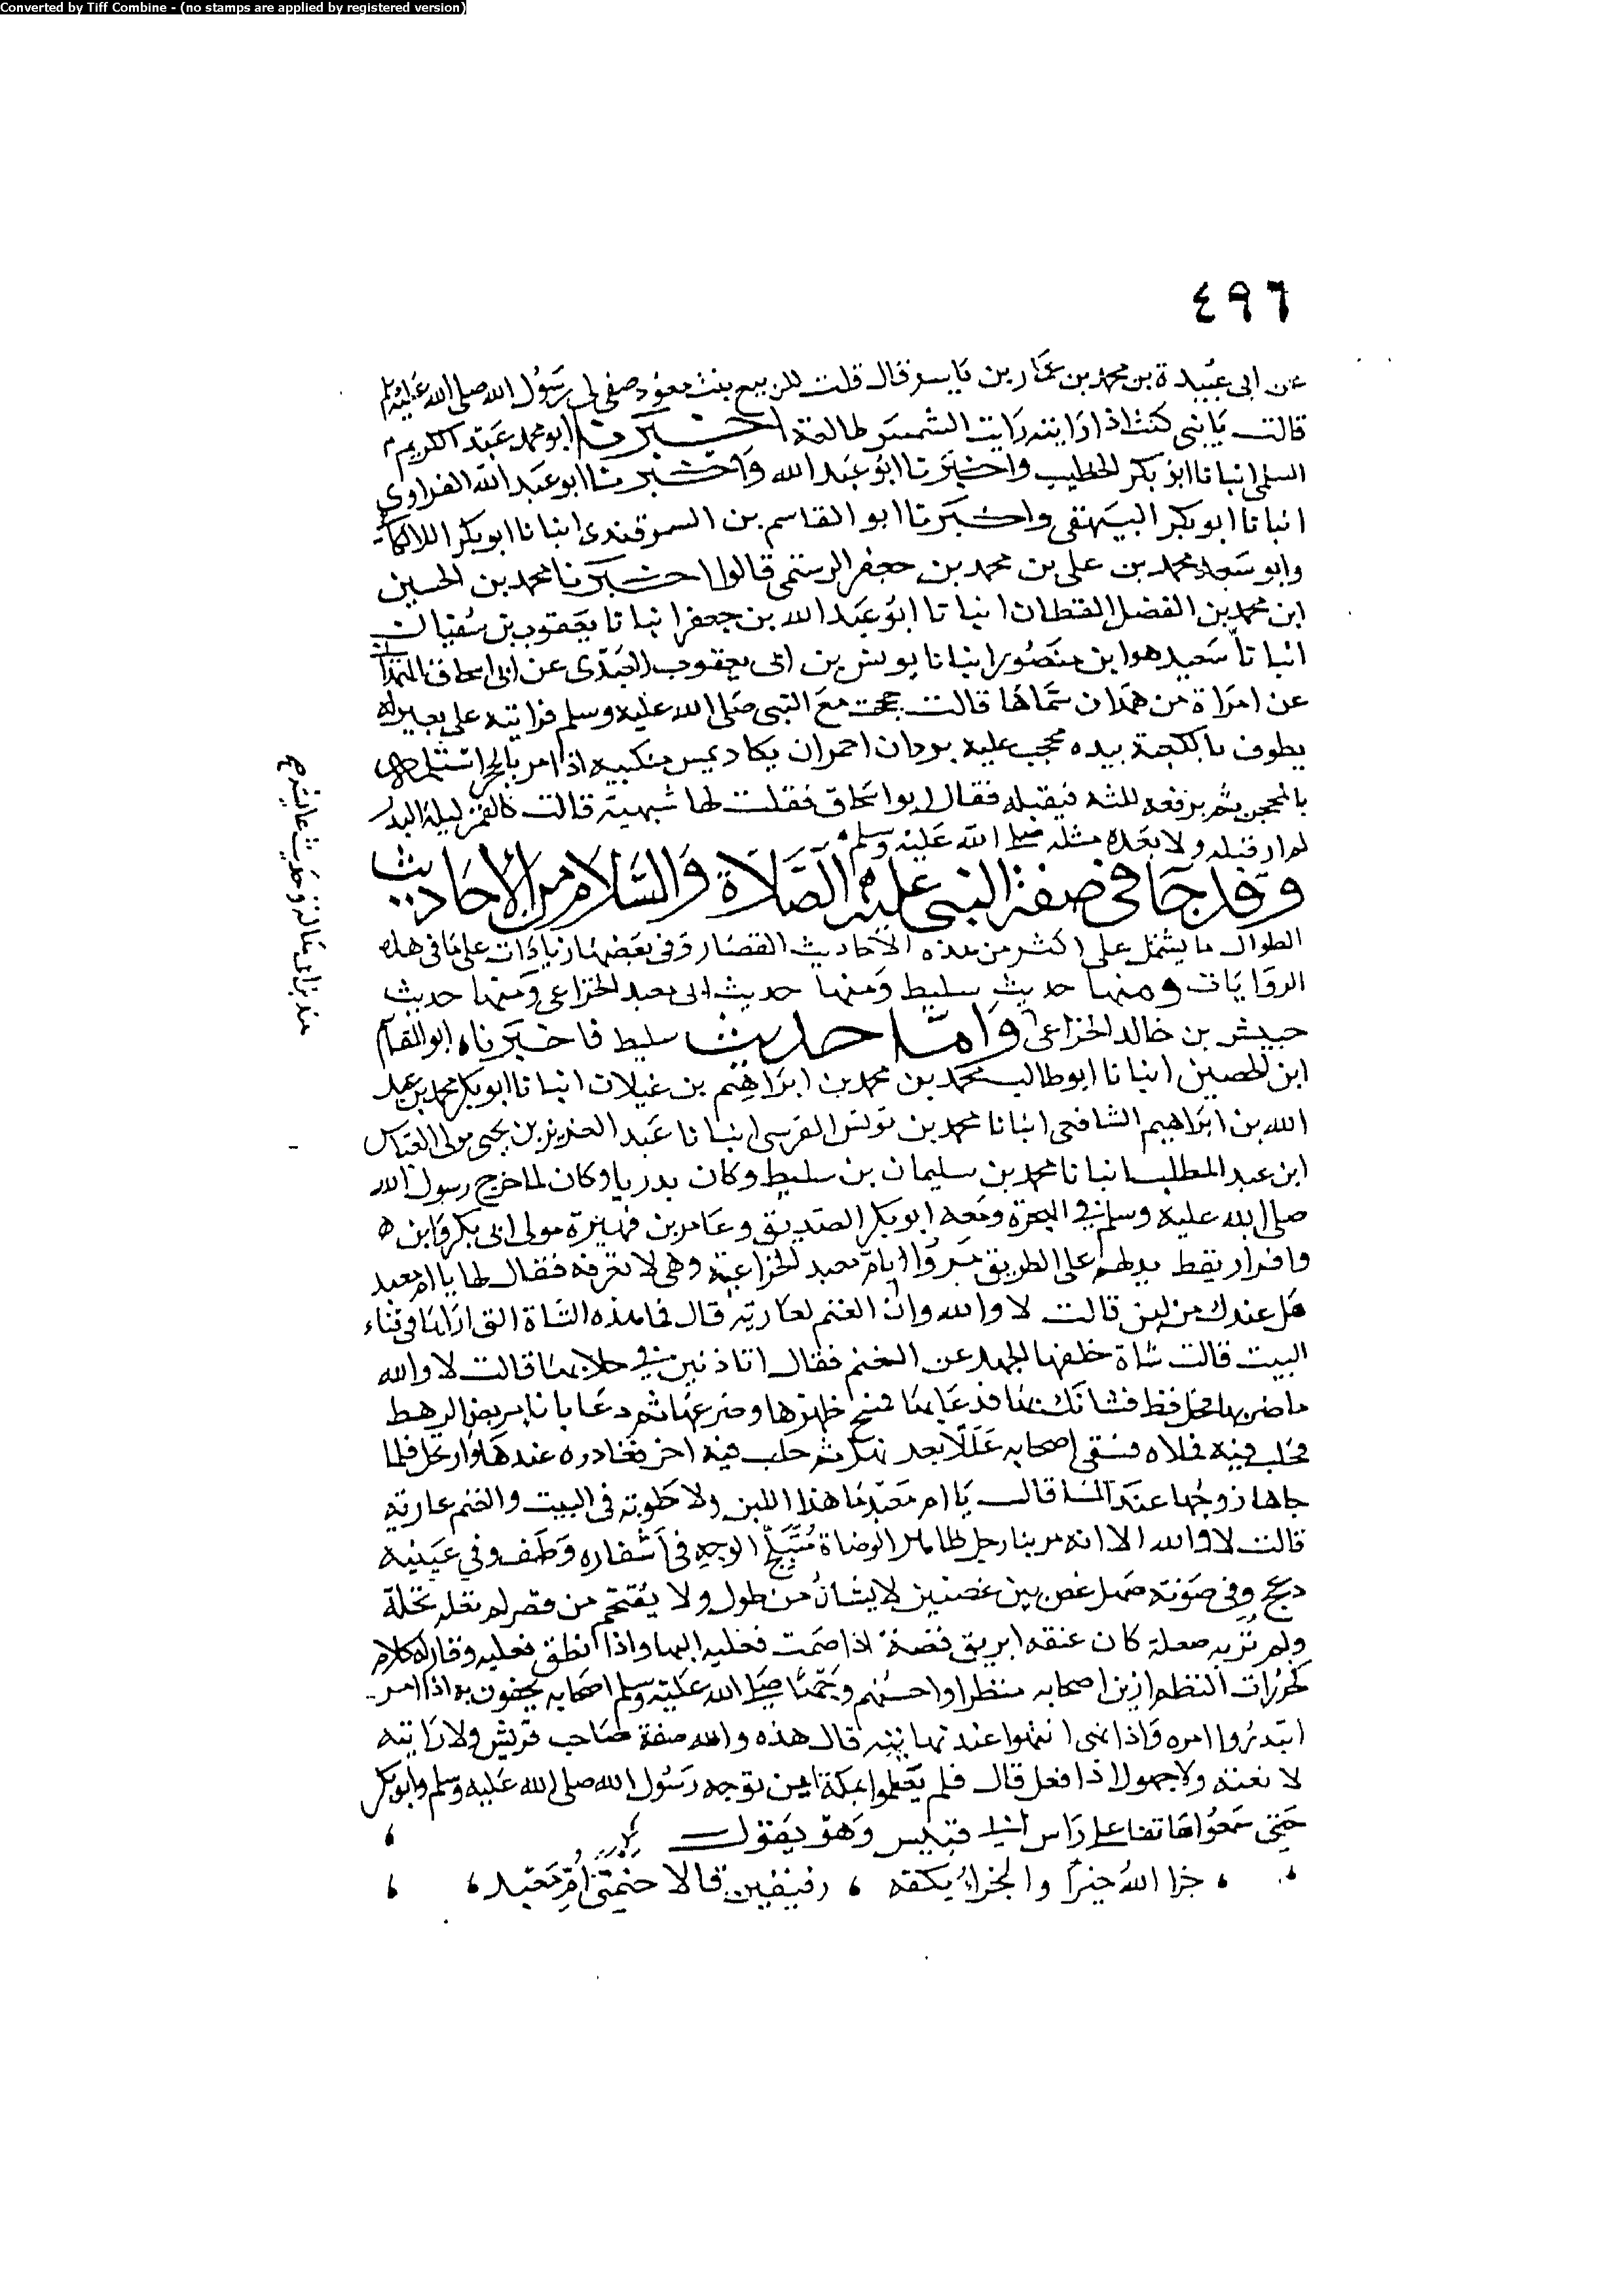 Converted by Tiff Combine - (no stamps are applied by registered version)
٤٩٦
عن ابى عبيدة بن محمد بن عمار بن ياسر قال قلت للربيع بنت معوذ صفى لى رسول الله صلى الله عليه وسلم
قالت يا بنى كنت اذا رايته رايت الشمس طالعة اخبرنا ابو محمد عبد الكريم
السلمى انبانا ابو بكر الخطيب واخبرنا ابو عبد الله واخبرنا ابو عبد الله الفراوى
انبانا ابو بكر البيهقى واخبرنا ابو القاسم بن السمرقندى انبانا ابو بكر اللالكائى
وابو سعد محمد بن على بن محمد بن جعفر الرستمى قالوا اخبرنا محمد بن الحسين
ابن محمد بن الفضل القطان انبانا ابو عبد الله بن جعفر انبانا يعقوب بن سفيان
انبانا سعيد هو ابن منصور انبانا يونس بن ابى يعقوب العبدى عن ابى اسحاق الهمدانى
عن امراة من همدان سماها قالت حججت مع النبى صلى الله عليه وسلم فرايته على بعير له
يطوف بالكعبة بيده محجن عليه بردان احمران يكاد يمس منكبيه اذا مر بالحجر استلمه
بالمحجن ثم يرفعه اليه فيقبله فقال ابو اسحاق فقلت لها شبهيه قالت كالقمر ليلة البدر
لم ار قبله ولا بعده مثله صلى الله عليه وسلم
وقد جا فى صفة النبى عليه الصلاة والسلام من الاحاديث
الطوال ما يشتمل على اكثر من هذه الاحاديث القصار وفى بعضها زيادات على ما فى هذه
الروايات ومنها حديث سليط ومنها حديث ابى معبد الخزاعى ومنها حديث
حبيش بن خالد الخزاعى واما حديث سليط فاخبرناه ابو القاسم
ابن الحصين انبانا ابو طالب محمد بن محمد بن ابراهيم بن غيلان انبانا ابو بكر محمد بن عبد
الله بن ابراهيم الشافعى انبانا محمد بن يونس القرسى انبانا عبد العزيز بن يحيى مولى العباس
ابن عبد المطلب انبانا محمد بن سليمان بن سليط وكان بدريا وكان لما خرج رسول الله
صلى الله عليه وسلم فى الهجرة ومعه ابو بكر الصديق وعامر بن فهيرة مولى ابى بكر وابن
اريقط يدلهم على الطريق مروا بام معبد الخزاعية وهى لا تعرفه فقال لها يا ام معبد
هل عندك من لبن قالت لا والله وان الغنم لعازبة قال فما هذه الشاة التى اراها فى
البيت قالت شاة خلفها الجهد عن الغنم فقال اتاذنين فى حلابها قالت لا والله
ما ضربها فحل قط فشانك بها فدعا بها فمسح ظهرها وضرعها ثم دعا بانا يربض الرهط
فحلب فيه فملاه فسقى اصحابه عللا بعد نهل ثم حلب فيه اخر فغادره عندها وارتحل فلما
جاها زوجها عند المسا قال يا ام معبد ما هذا اللبن ولا حلوبة فى البيت والغنم عازبه
قالت لا والله الا انه مر بنا رجل ظاهر الوضاة متبلج الوجه فى اشفاره وطف وفى عينيه
دعج وفى صوته صهل غصن بين غصنين لا يشان من طول ولا يقتحم من قصر لم تعله ثجلة
ولم تزر به صعلة كان عنقه ابريق فضة اذا صمت فعليه البها واذا نطق فعليه وقار له كلام
كخرزات النظم ازين اصحابه منظرا واحسنهم وجها صلى الله عليه وسلم اصحابه يحفون به اذا امر
ابتدروا امره واذا نهى انتهوا عند نهايته قال هذه والله صفة صاحب قريش ولو رايته
لاتبعته ولاجهدن اذا فعل قال فلم يعلموا بمكة اين توجه رسول الله صلى الله عليه وسلم وابو بكر
حتى سمعوا هاتفا على راس ابى قبيس وهو يقول
جزا الله خيرا والجزاء يكفه رفيقين قالا خيمتى ام معبد